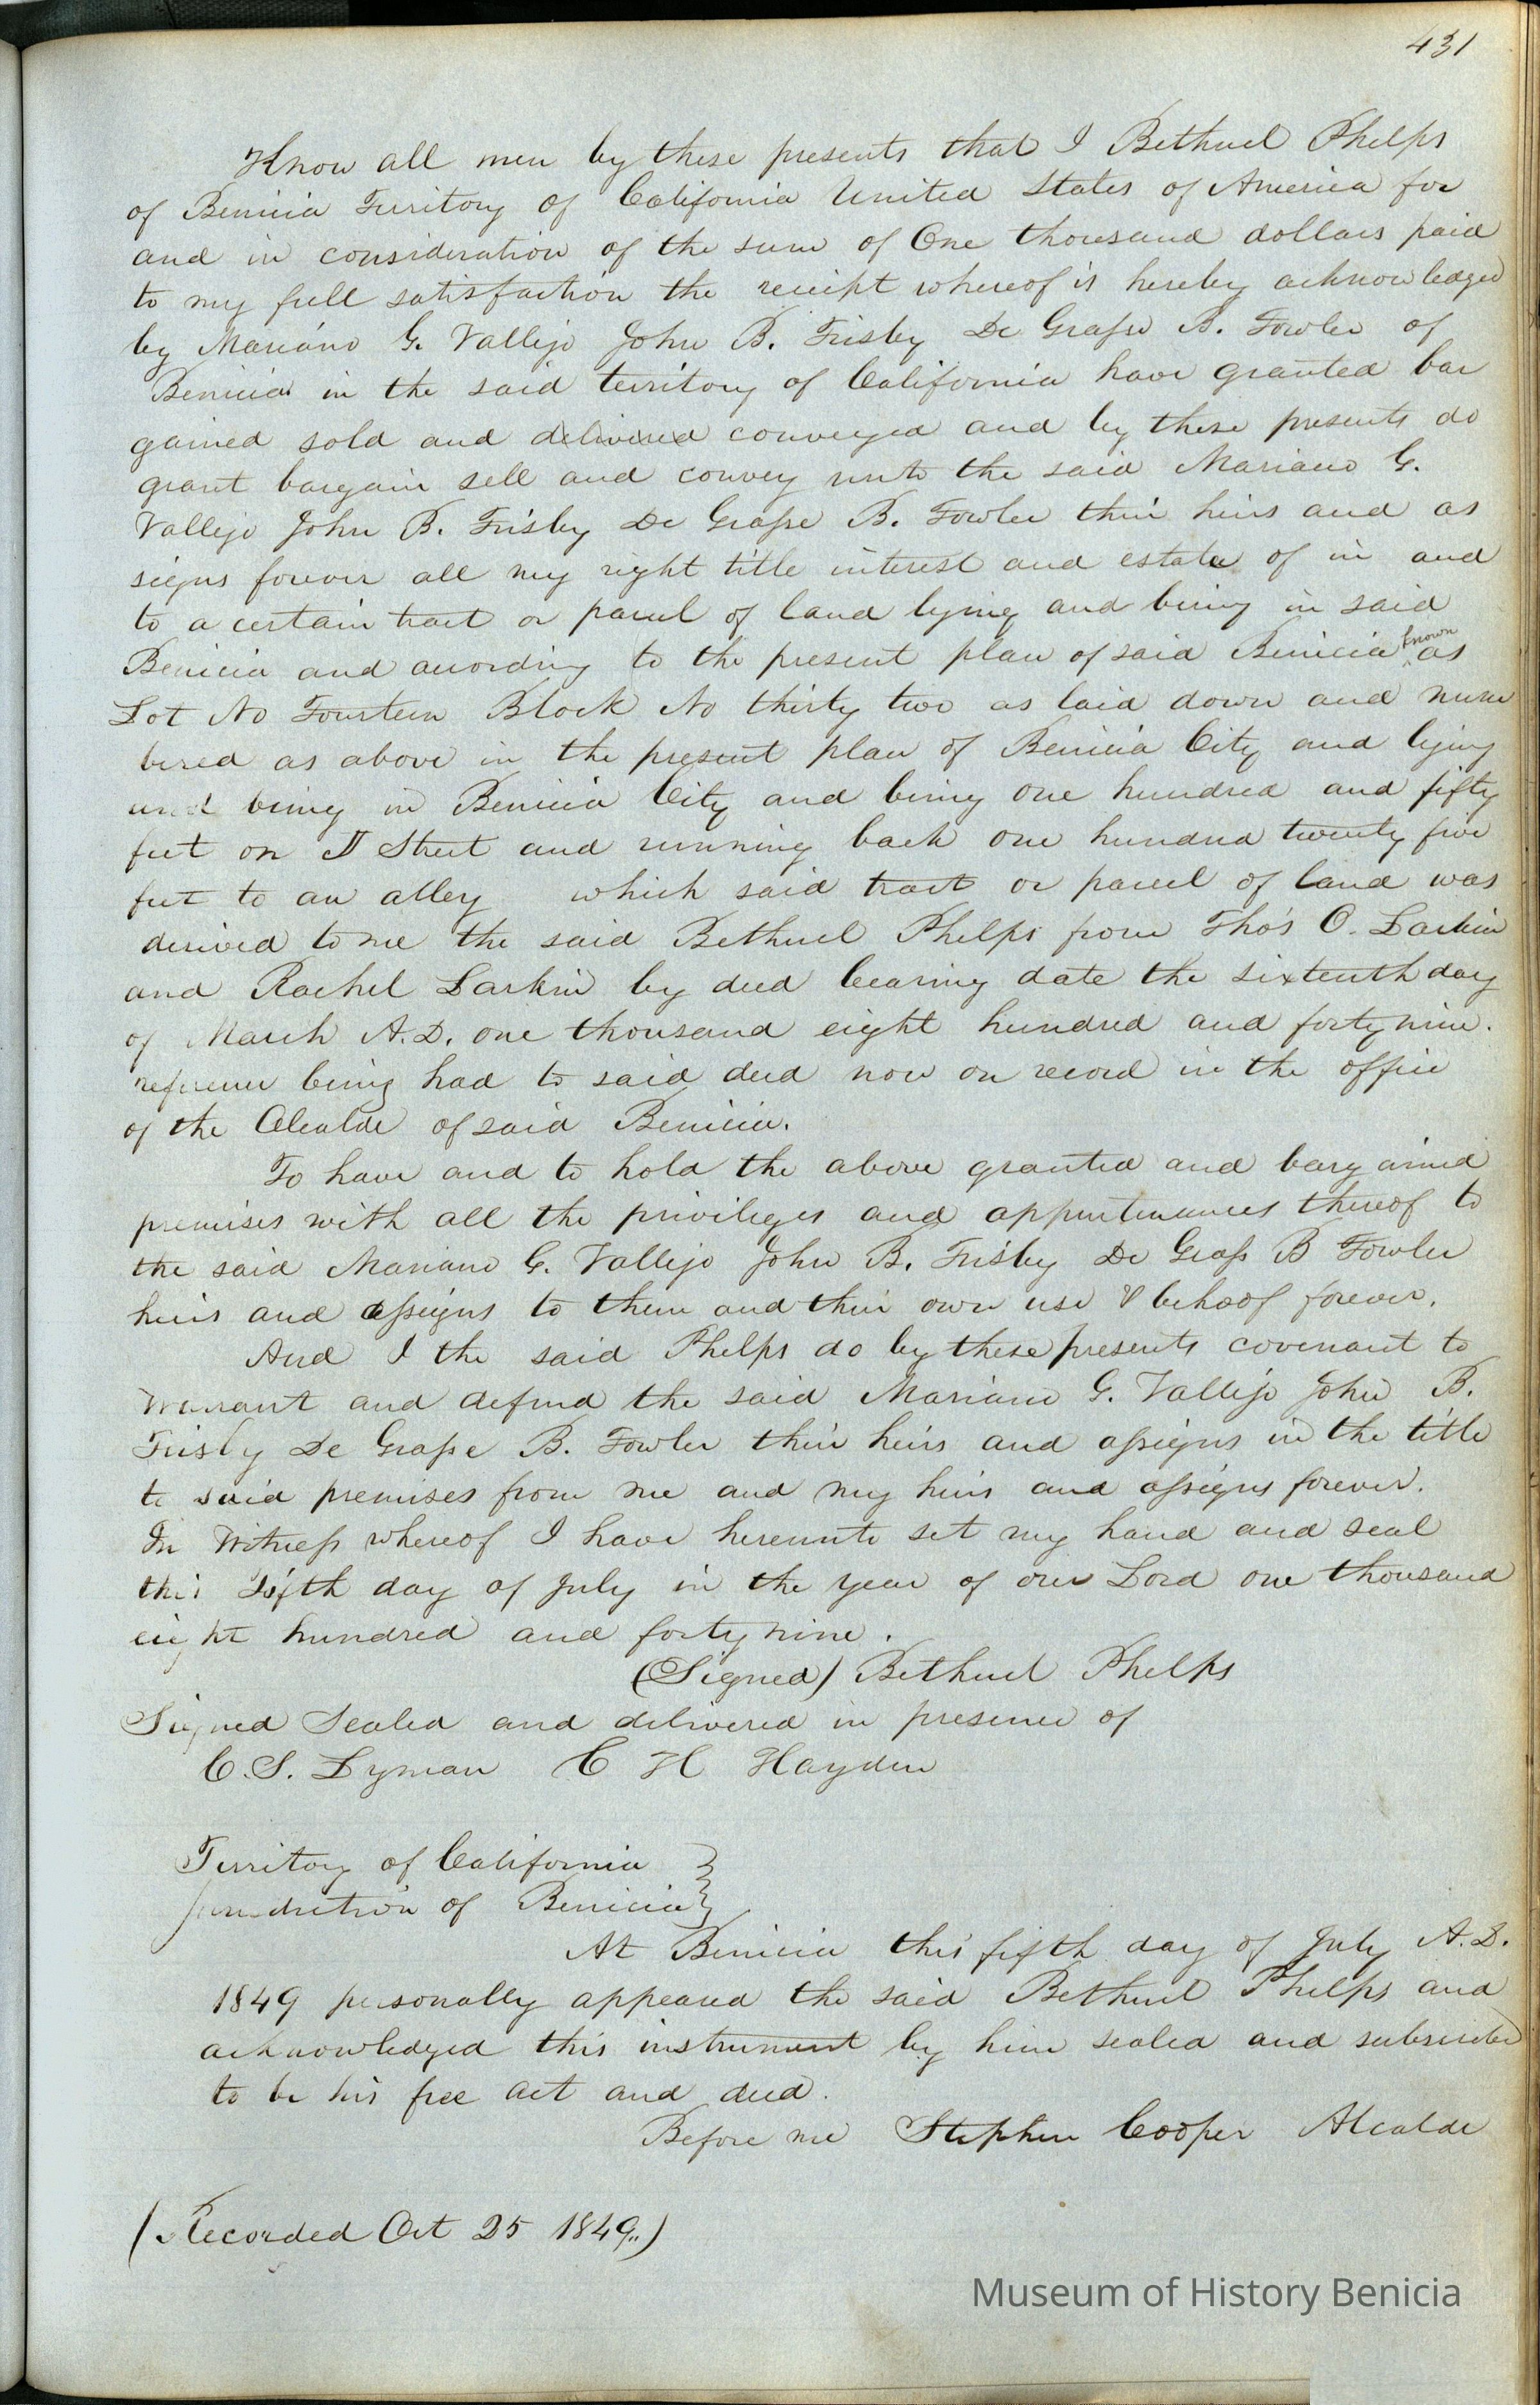 431
Know all men by these presents that I Bethuel Phelps
of Benicia Territory of California United States of America for
and in consideration of the sum of One thousand dollars paid
to my full satisfaction the receipt whereof is hereby acknowledged
by Mariano G. Vallejo John B. Frisby De Grasse B. Fowler of
Benicia in the said territory of California have granted bar
gained sold and delivered conveyed and by these presents do
grant bargain sell and convey unto the said Mariano G.
Vallejo John B. Frisby De Grasse B. Fowler their heirs and as
signs forever all my right title interest and estate of in and
to a certain tract or parcel of land lying and being in said
Benicia and according to the present plan of said Benicia known as
Lot No Fourteen Block No thirty two as laid down and num
bered as above in the present plan of Benicia City and lying
and being in Benicia City and being one hundred and fifty
feet on Street and running back one hundred twenty five
feet to an alley which said tract or parcel of land was
derived to me the said Bethuel Phelps from Tho's O. Larkin
and Rachel Larkin by deed bearing date the sixteenth day
of March A.D. one thousand eight hundred and forty nine.
reference being had to said deed now on record in the office
of the Alcalde of said Benicia.
To have and to hold the above granted and bargained
premises with all the privileges and appurtenances thereof to
the said Mariano G. Vallejo John B. Frisby De Grass B Fowler
heirs and assigns to them and their own use & behoof forever.
And I the said Phelps do by these presents covenant to
warrant and defend the said Mariano G. Vallejo John B.
Frisby De Grasse B. Fowler their heirs and assigns in the title
to said premises from me and my heirs and assigns forever.
In Witness whereof I have hereunto set my hand and seal
this fifth day of July in the year of our Lord one thousand
eight hundred and forty nine.
(Signed) Bethuel Phelps
Signed Sealed and delivered in presence of
C.S. Lyman C H Hayden
Territory of California
Jurisdiction of Benicia
At Benicia this fifth day of July A.D.
1849 personally appeared the said Bethuel Phelps and
acknowledged this instrument by him sealed and subscribed
to be his free act and deed.
Before me Stephen Cooper Alcalde
(Recorded Oct 25 1849.)
Museum of History Benicia